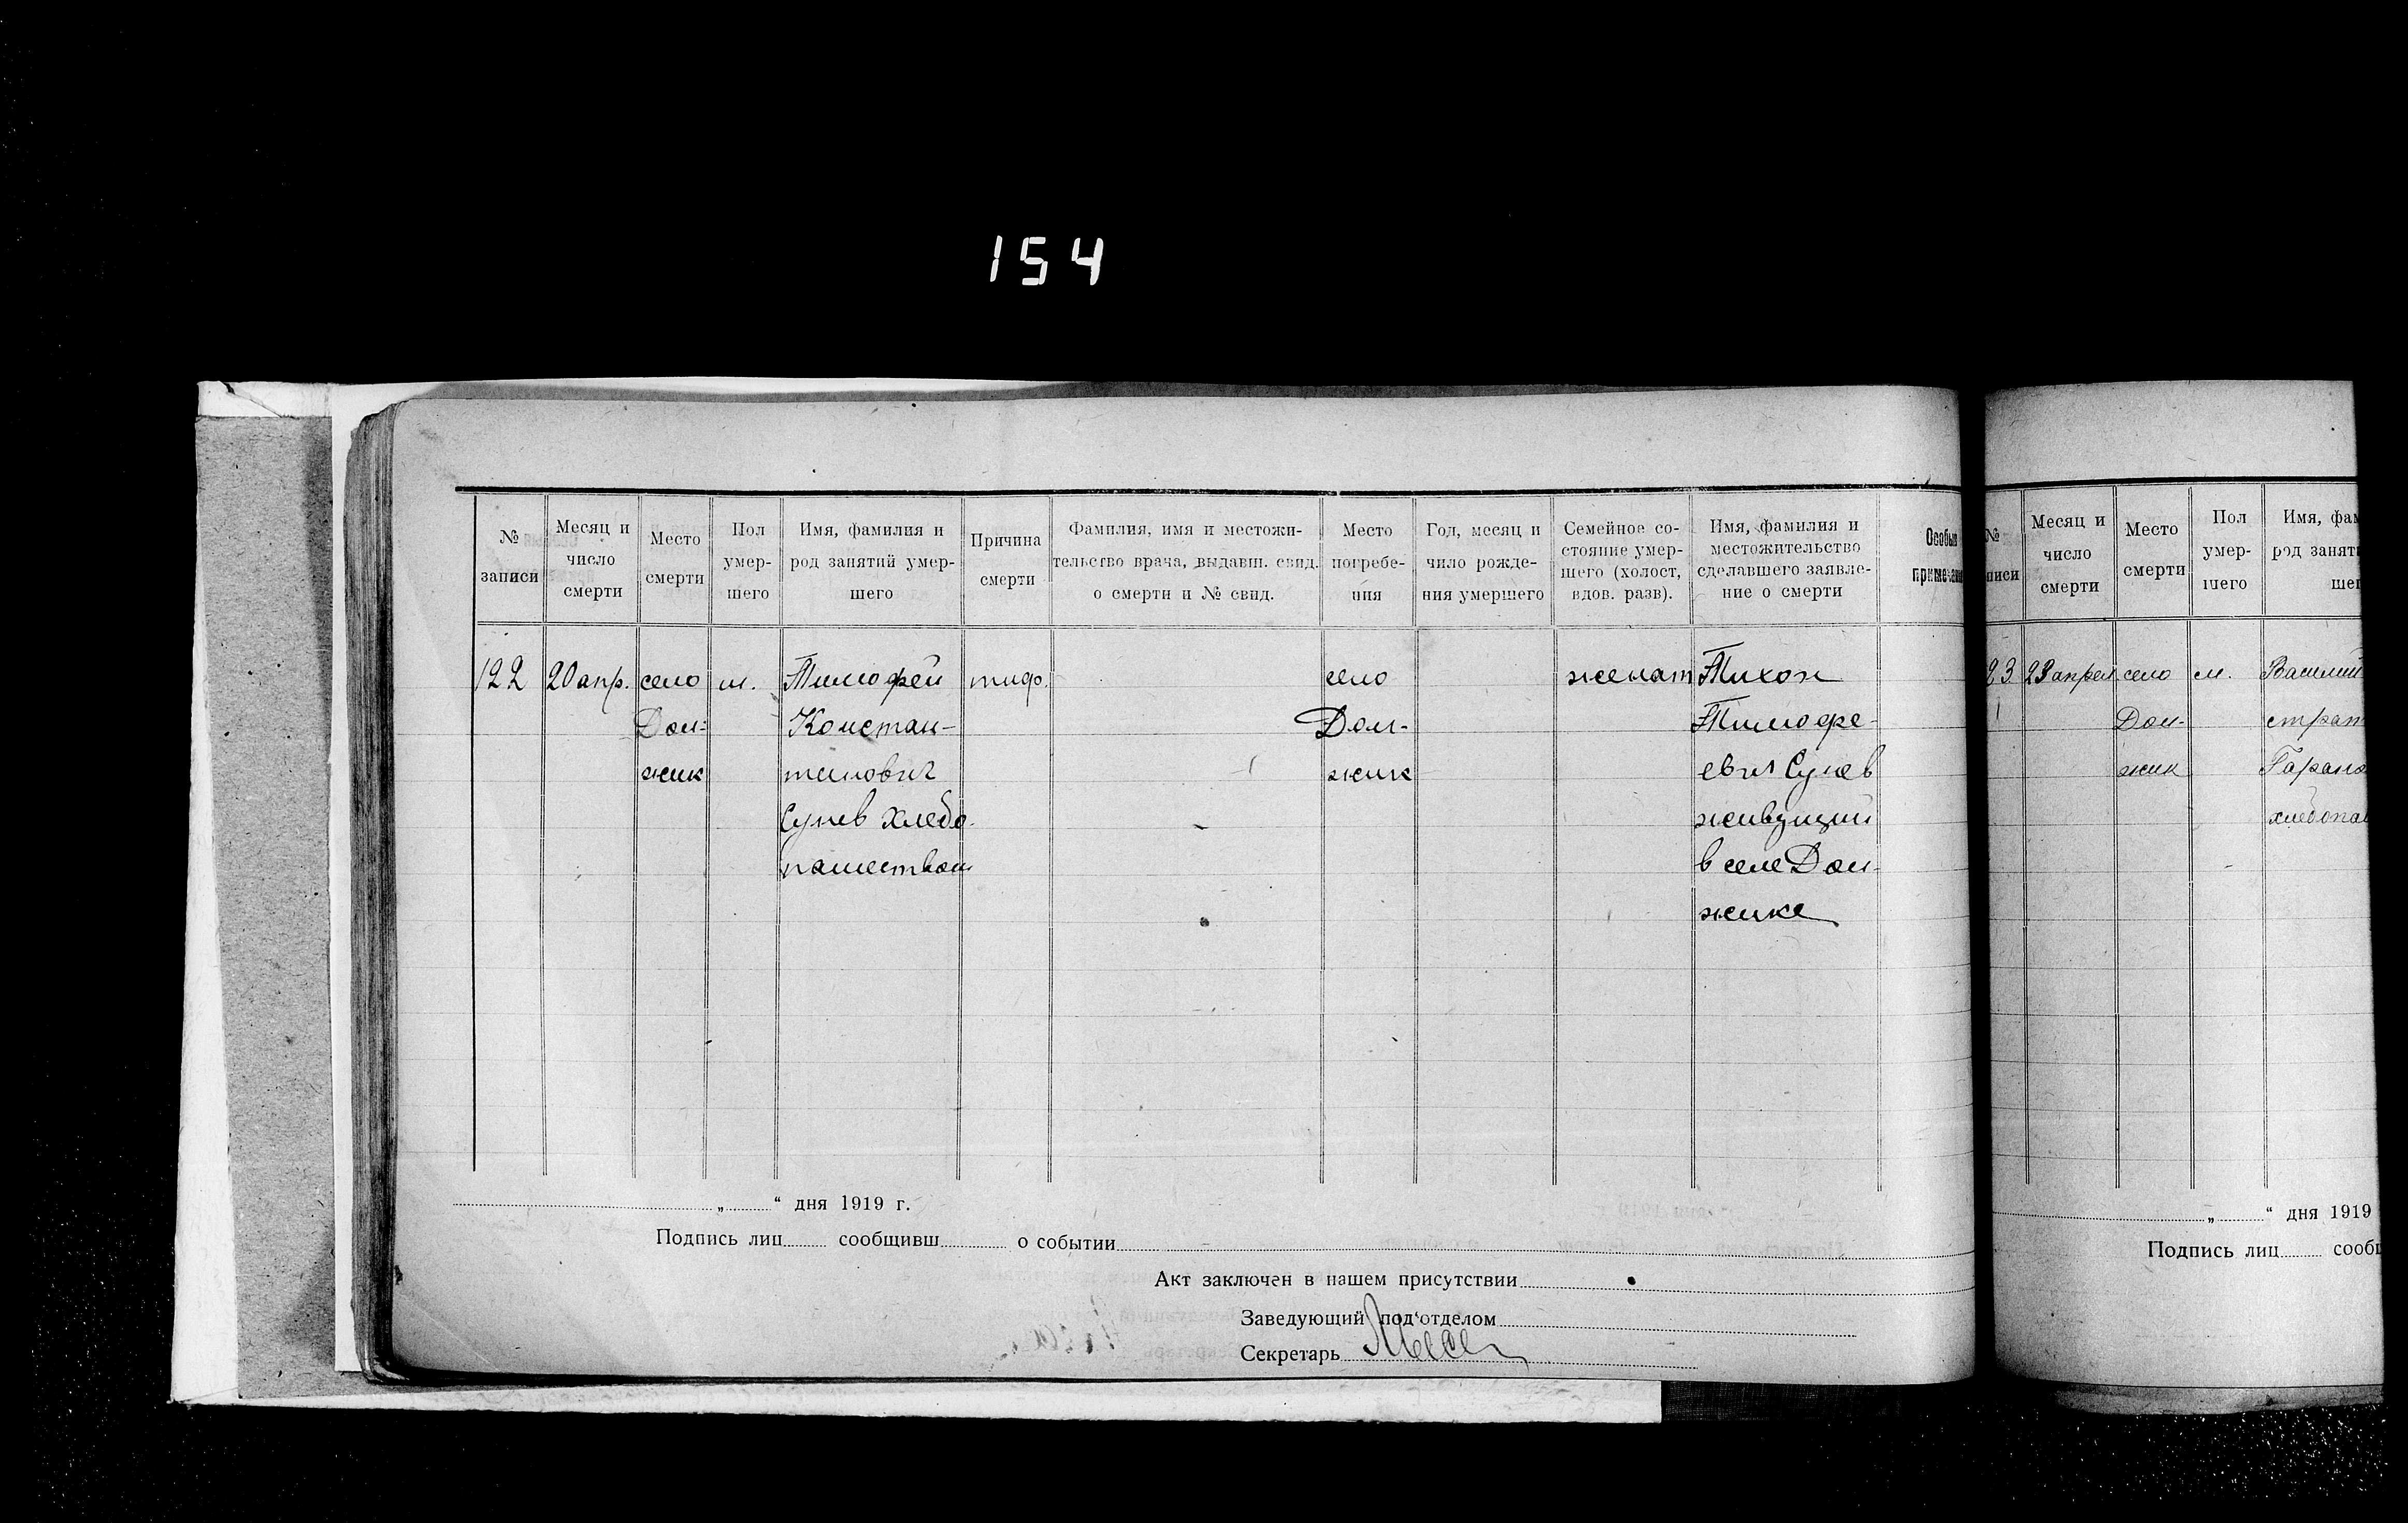 154
№ записи
Месяц и число смерти
Место смерти
Пол умершего
Имя, фамилия и род занятий умершего
Причина смерти
Фамилия, имя и местожительство врача, выдавш. свид. о смерти и № свид.
Место погребения
Год, месяц и чило рождения умершего
Семейное состояние умершего (холост, вдов. разв).
Имя, фамилия и местожительство сделавшего заявление о смерти
Особыя
122 20 апр. село м. Тимофей тиф. село женат Тихон
Дол- Констан- Дол- Тимофе-
жик тинович жик евич Сунев
Сунев хлебо- живущий
пашеством в селе Дол-
жике
„ “ дня 1919 г.
Подпись лиц сообщивш о событии
Акт заключен в нашем присутствии
Заведующий под‘отделом
Секретарь
№
Месяц и число смерти
Место смерти
Пол умершего
Имя, фам
род занят
шег
23 23 апрел. село м. Василий
Дол- страт
жик
хлебопа
„ “ дня 1919
Подпись лиц сооб